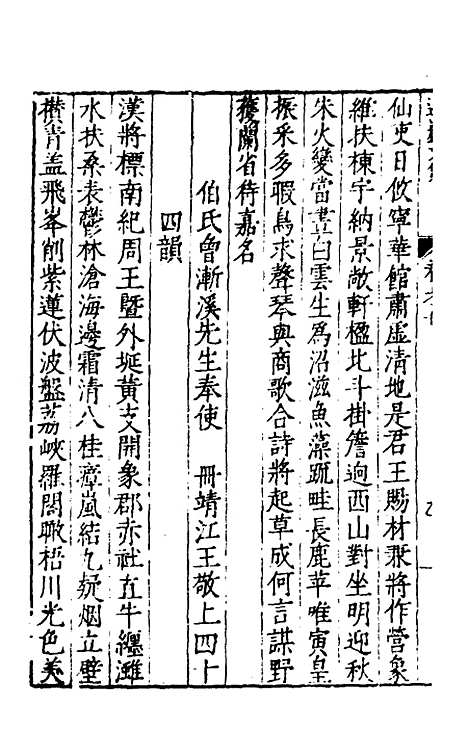 仙吏日攸寧華館肅虛清地是君王賜材兼將作營象
維扶棟宇納景敞軒楹北斗掛簷逈西山對坐明迎秋
朱火變當晝白雲生為沼滋魚藻䟽畦長鹿苹唯寅皇
振采多暇鳥求聲琴與商歌合詩將起草成何言謀野
獲蘭省待嘉名
伯氏魯漸溪先生奉使 冊靖江王敬上四十
四韻
漢將標南紀周王曁外埏黃支開象郡赤社直牛纒灕
水扶桑表鬱林滄海邊霜清八桂瘴嵐結九疑烟立壁
攅青盖飛峯削紫蓮伏波盤荔峽羅閣瞰梧川光色美